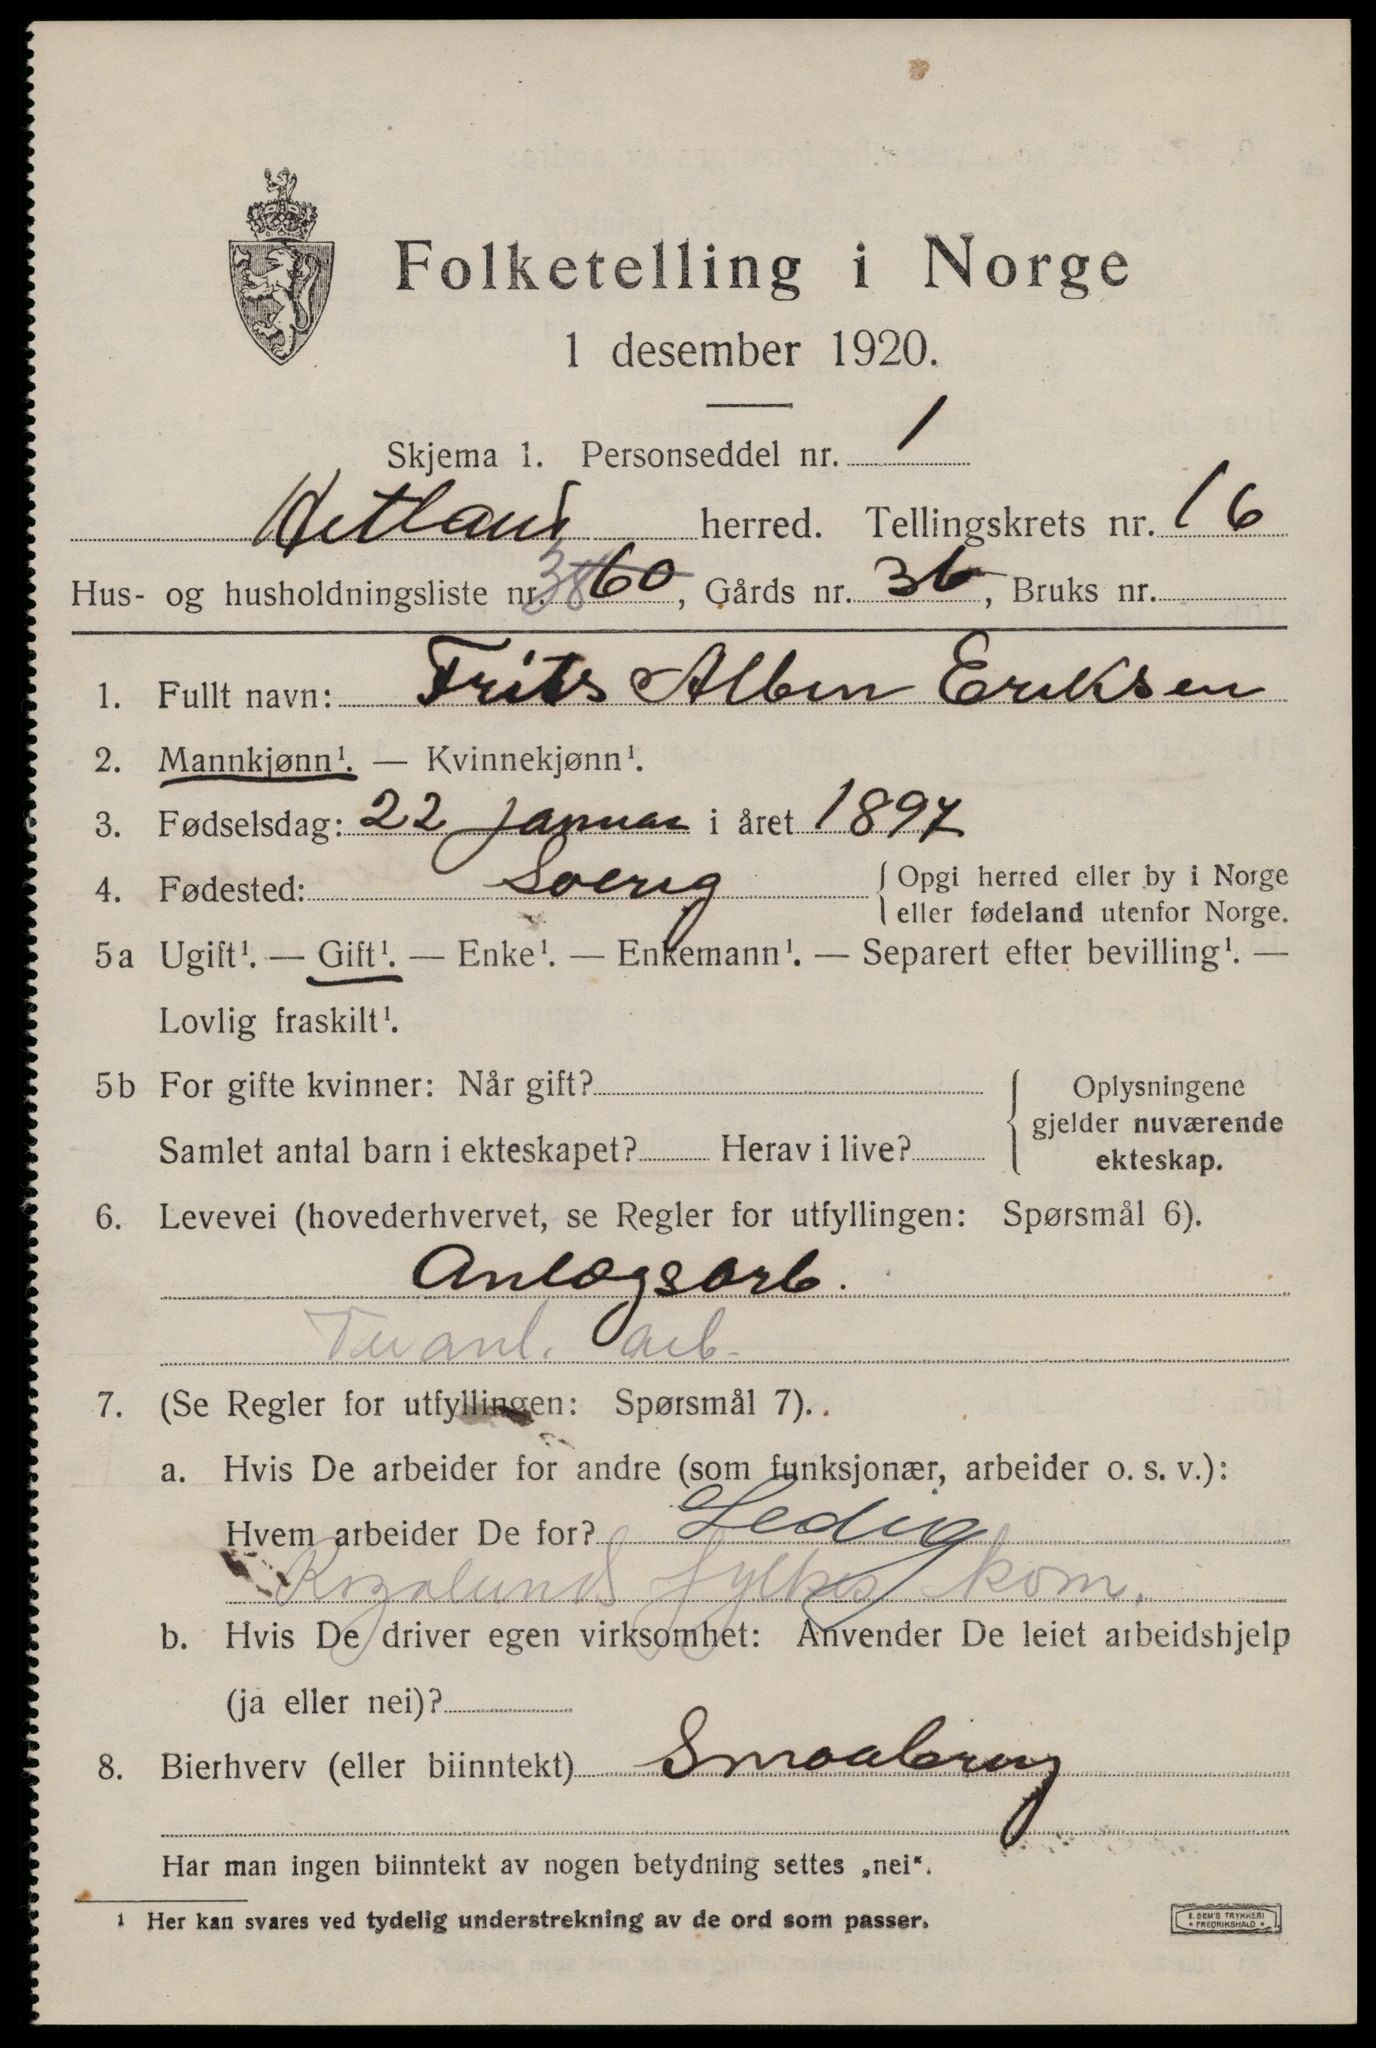 Folketelling i Norge
1 desember 1920.
Skjema 1. Personseddel nr. 1
Hetland herred. Tellingskrets nr. 16
Hus- og husholdningsliste nr. 38 60, Gårds nr. 36, Bruks nr.
1. Fullt navn: Frits Albin Eriksen
2. Mannkjønn¹. — Kvinnekjønn¹.
3. Fødselsdag: 22 januar i året 1897
4. Fødested: Sverig { Opgi herred eller by i Norge
eller fødeland utenfor Norge.
5a Ugift¹. — Gift¹. — Enke¹. — Enkemann¹. — Separert efter bevilling¹. —
Lovlig fraskilt¹.
5b For gifte kvinner: Når gift?
Samlet antal barn i ekteskapet? Herav i live?
Oplysningene
gjelder nuværende
ekteskap.
6. Levevei (hovederhvervet, se Regler for utfyllingen: Spørsmål 6).
Anlægsarb.
arb.
7. (Se Regler for utfyllingen: Spørsmål 7).
a. Hvis De arbeider for andre (som funksjonær, arbeider o. s. v.):
Hvem arbeider De for? Ledig
Rogalands fylkes kom.
b. Hvis De driver egen virksomhet: Anvender De leiet arbeidshjelp
(ja eller nei)?
8. Bierhverv (eller biinntekt) Smaabrug
Har man ingen biinntekt av nogen betydning settes „nei“.
¹ Her kan svares ved tydelig understrekning av de ord som passer.
E. SEM'S TRYKKERI
* FREDRIKSHALD *